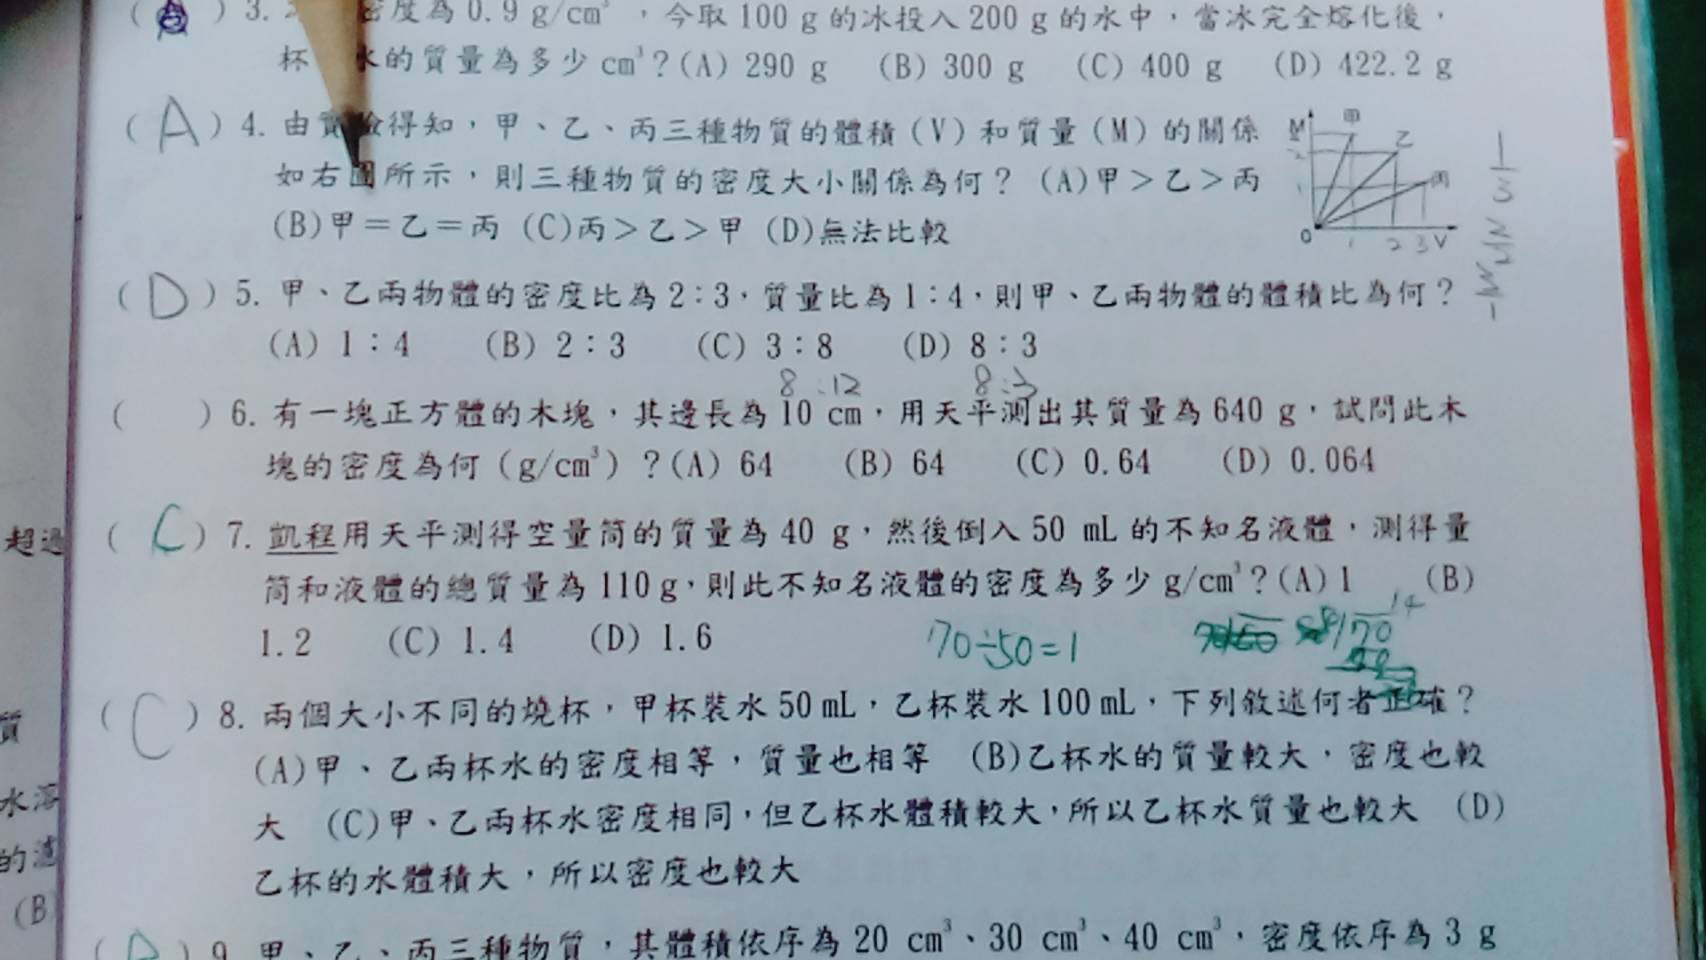 ( ) 3. 密度為 0.9 g/cm³，今取 100 g 的冰投入 200 g 的水中，當冰完全熔化後，
杯 水的質量為多少 cm³？(A) 290 g (B) 300 g (C) 400 g (D) 422.2 g
( A ) 4. 由實驗得知，甲、乙、丙三種物質的體積（V）和質量（M）的關係
如右圖所示，則三種物質的密度大小關係為何？ (A)甲＞乙＞丙
(B)甲＝乙＝丙 (C)丙＞乙＞甲 (D)無法比較
M 甲 乙 丙
0 1 2 3 V
1/3
( D ) 5. 甲、乙兩物體的密度比為 2：3，質量比為 1：4，則甲、乙兩物體的體積比為何？
(A) 1：4 (B) 2：3 (C) 3：8 (D) 8：3
8:12 8:3
( ) 6. 有一塊正方體的木塊，其邊長為 10 cm，用天平測出其質量為 640 g，試問此木
塊的密度為何（g/cm³）？(A) 64 (B) 64 (C) 0.64 (D) 0.064
( C ) 7. 凱程用天平測得空量筒的質量為 40 g，然後倒入 50 mL 的不知名液體，測得量
筒和液體的總質量為 110 g，則此不知名液體的密度為多少 g/cm³？(A) 1 (B)
1.2 (C) 1.4 (D) 1.6
70÷50=1
( C ) 8. 兩個大小不同的燒杯，甲杯裝水 50 mL，乙杯裝水 100 mL，下列敘述何者正確？
(A)甲、乙兩杯水的密度相等，質量也相等 (B)乙杯水的質量較大，密度也較
大 (C)甲、乙兩杯水密度相同，但乙杯水體積較大，所以乙杯水質量也較大 (D)
乙杯的水體積大，所以密度也較大
9. 甲、乙、丙三種物質，其體積依序為 20 cm³、30 cm³、40 cm³，密度依序為 3 g
超過
質
水溶
的
(B